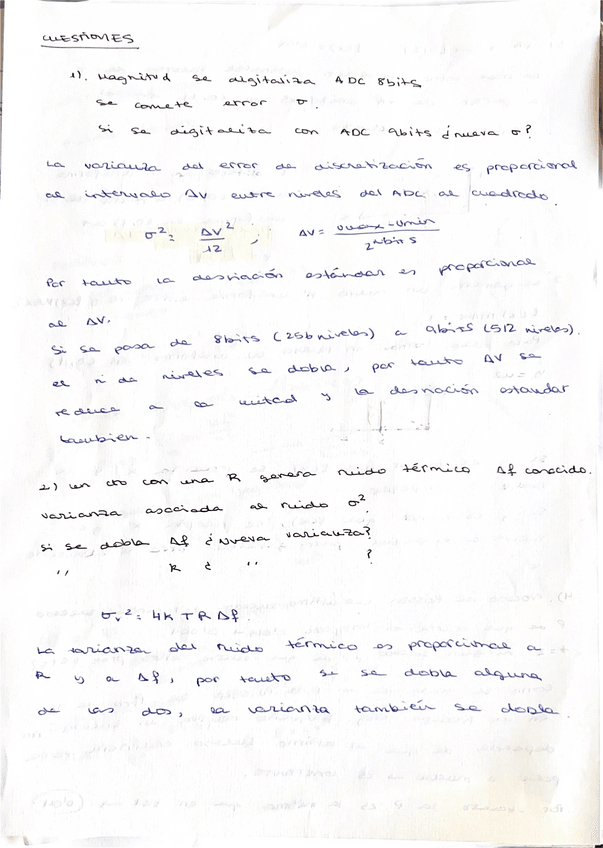 CUESTIONES
1). Magnitud se digitaliza ADC 8bits
se comete error σ.
Si se digitaliza con ADC 9bits ¿nueva σ?
La varianza del error de discretización es proporcional
al intervalo ΔV entre niveles del ADC al cuadrado.
σ² = ΔV²/12 , ΔV = (Vmax - Vmin)/2^nbits
Por tanto la desviación estándar es proporcional
al ΔV.
Si se pasa de 8bits (256 niveles) a 9bits (512 niveles).
el n de niveles se dobla, por tanto ΔV se
reduce a la mitad y la desviación estandar
tambien.
2) un cto con una R genera ruido térmico Δf conocido.
varianza asociada al ruido σ².
Si se dobla Δf ¿Nueva varianza?
,, R ¿ ,, ?
σv² = 4KTRΔf.
La varianza del ruido térmico es proporcional a
R y a Δf, por tanto si se dobla alguna
de las dos, la varianza también se dobla.